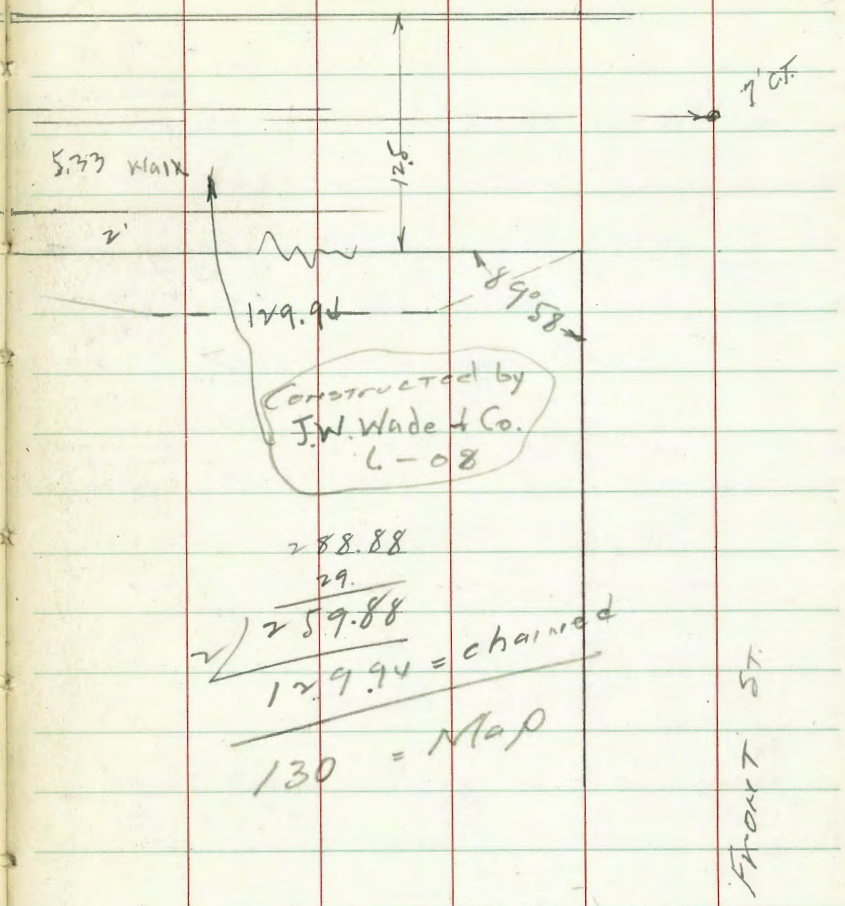 12.5
5.33 Walk
2'
89° 58
129.94
Constructed by
J.W. Wade & Co.
6-08
288.88
29.
2 259.88
129.94 = chained
130 = Map
FRONT ST.